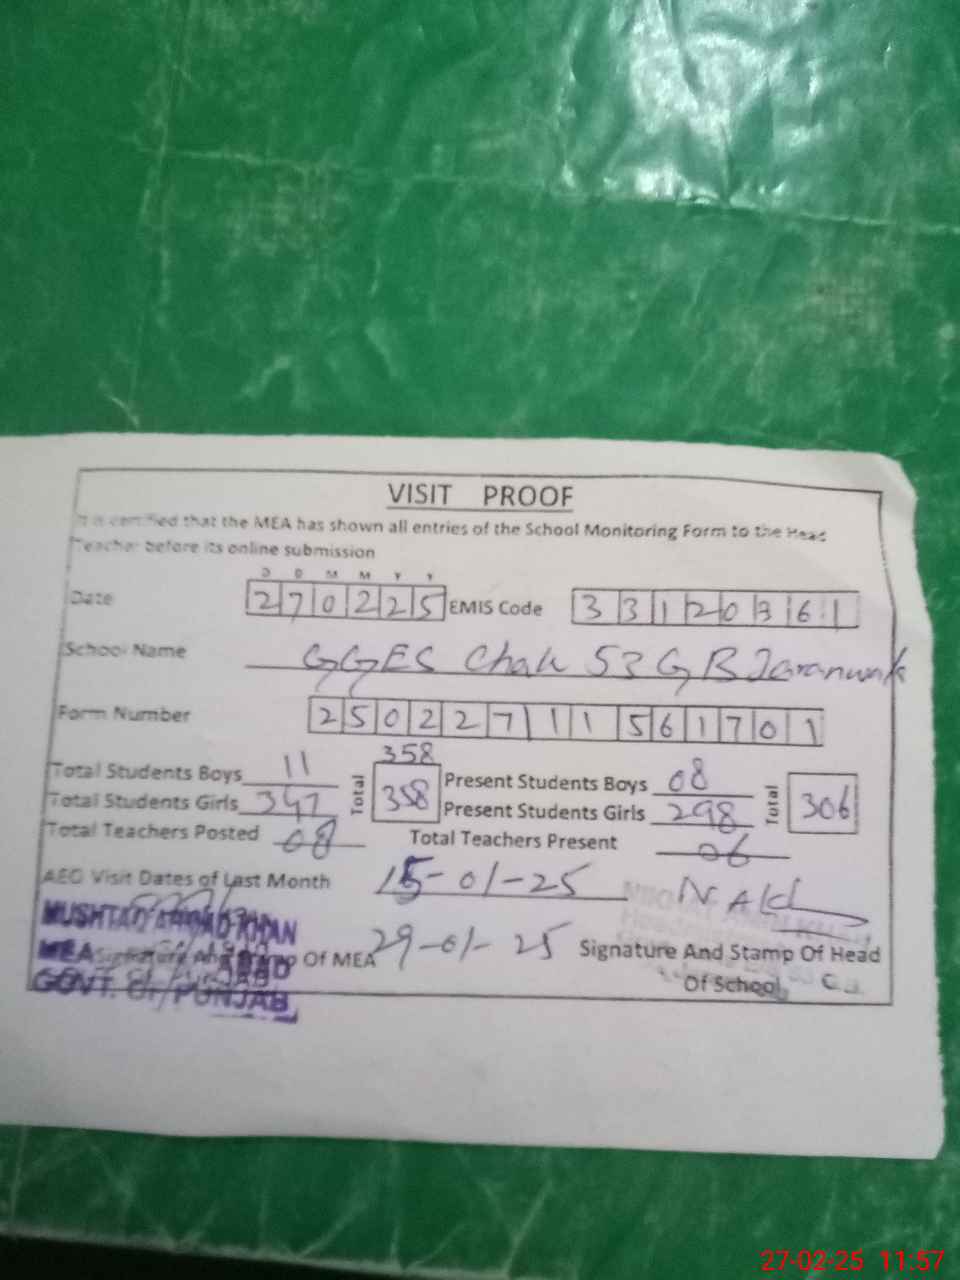 VISIT PROOF
It is certified that the MEA has shown all entries of the School Monitoring Form to the Head
Teacher before its online submission
D D M M Y Y
Date 270225 EMIS Code 33120361
School Name GGES Chak 53 GB Jaranwala
Form Number 25022711561701
358
Total Students Boys 11 Total 358 Present Students Boys 08 Total 306
Total Students Girls 347 Present Students Girls 298
Total Teachers Posted 08 Total Teachers Present 06
AEO Visit Dates of Last Month 15-01-25
MUSHTAQ AHMAD KHAN
29-01-25
MEA Signature And Stamp Of MEA Signature And Stamp Of Head
Of School
GOVT. OF PUNJAB
27-02-25 11:57